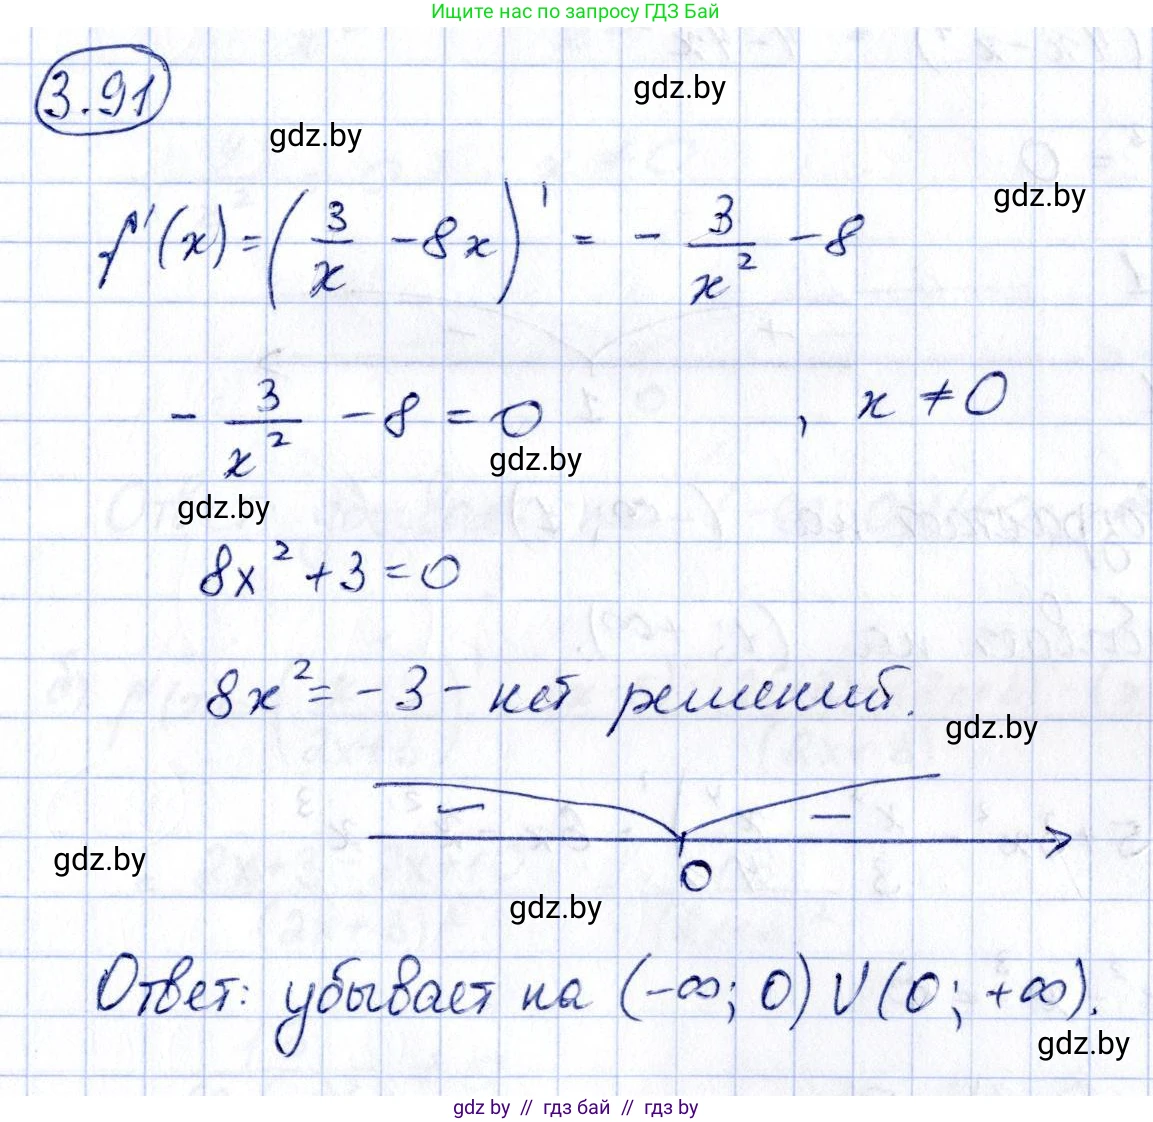 Ищите нас по запросу ГДЗ Бай
3.91
gdz.by
gdz.by
gdz.by
f'(x) = (3/x - 8x)' = - 3/x² - 8
- 3/x² - 8 = 0 , x ≠ 0
gdz.by
gdz.by
8x² + 3 = 0
8x² = -3 - нет решений.
gdz.by
- -
0
gdz.by
gdz.by
Ответ: убывает на (-∞; 0) U (0; +∞).
gdz.by
gdz by // гдз бай // гдз by